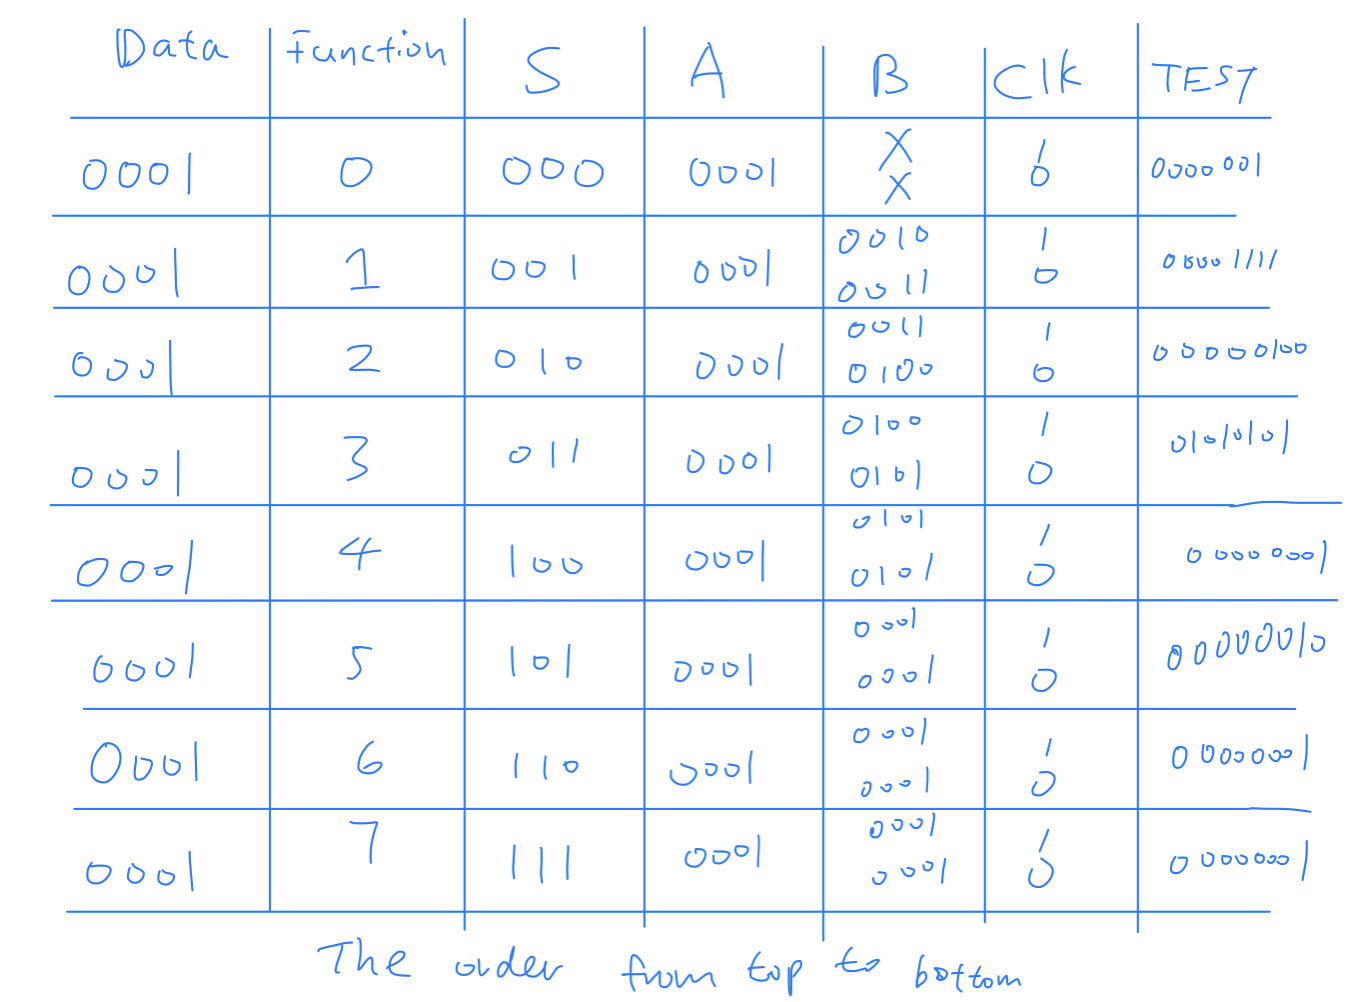 Data Function S A B Clk TEST
0001 0 000 0001 X X 1 0 0000001
0001 1 001 0001 0010 0011 1 0 00001111
0001 2 010 0001 0011 0100 1 0 00000100
0001 3 011 0001 0100 0101 1 0 01010101
0001 4 100 0001 0101 0101 1 0 00000001
0001 5 101 0001 0001 0001 1 0 00000010
0001 6 110 0001 0001 0001 1 0 00000001
0001 7 111 0001 0001 0001 1 0 00000001
The order from top to bottom